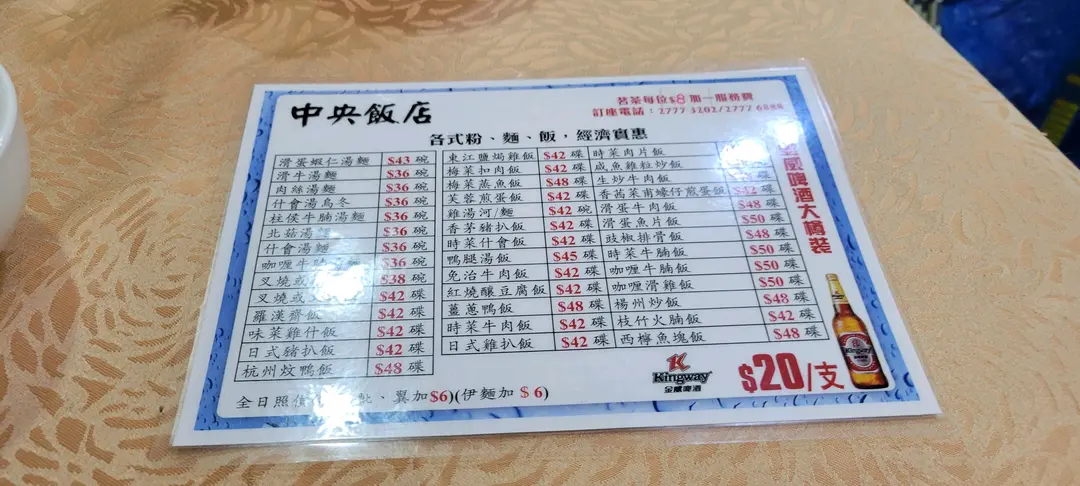 中央飯店
茗茶每位$8加一服務費
訂座電話：2777 3202/2777 6888
各式粉、麵、飯，經濟實惠
滑蛋蝦仁湯麵 $43 碗
滑牛湯麵 $36 碗
肉絲湯麵 $36 碗
什會湯烏冬 $36 碗
柱侯牛腩湯麵 $36 碗
北菇湯 $36 碗
什會湯麵 $36 碗
咖喱牛 $36 碗
叉燒或 $38 碗
叉燒或 $42 碟
羅漢齋飯 $42 碟
味菜雞什飯 $42 碟
日式豬扒飯 $42 碟
杭州炆鴨飯 $48 碟
東江鹽焗雞飯 $42 碟
梅菜扣肉飯 $42 碟
梅菜蒸魚飯 $48 碟
芙蓉煎蛋飯 $42 碟
雞湯河/麵 $42 碗
香茅豬扒飯 $42 碟
時菜什會飯 $42 碟
鴨腿湯飯 $45 碟
免治牛肉飯 $42 碟
紅燒釀豆腐飯 $42 碟
薑蔥鴨飯 $48 碟
時菜牛肉飯 $42 碟
日式雞扒飯 $42 碟
時菜肉片飯
咸魚雞粒炒飯
生炒牛肉飯
香茜菜甫蠔仔煎蛋飯 $42 碟
滑蛋牛肉飯 $48 碟
滑蛋魚片飯 $50 碟
豉椒排骨飯 $48 碟
時菜牛腩飯 $50 碟
咖喱牛腩飯 $50 碟
咖喱滑雞飯 $50 碟
楊州炒飯 $48 碟
枝竹火腩飯 $42 碟
西檸魚塊飯 $48 碟
威啤酒大樽裝
Kingway
金威啤酒
$20/支
全日照 、翼加$6)(伊麵加 $6)